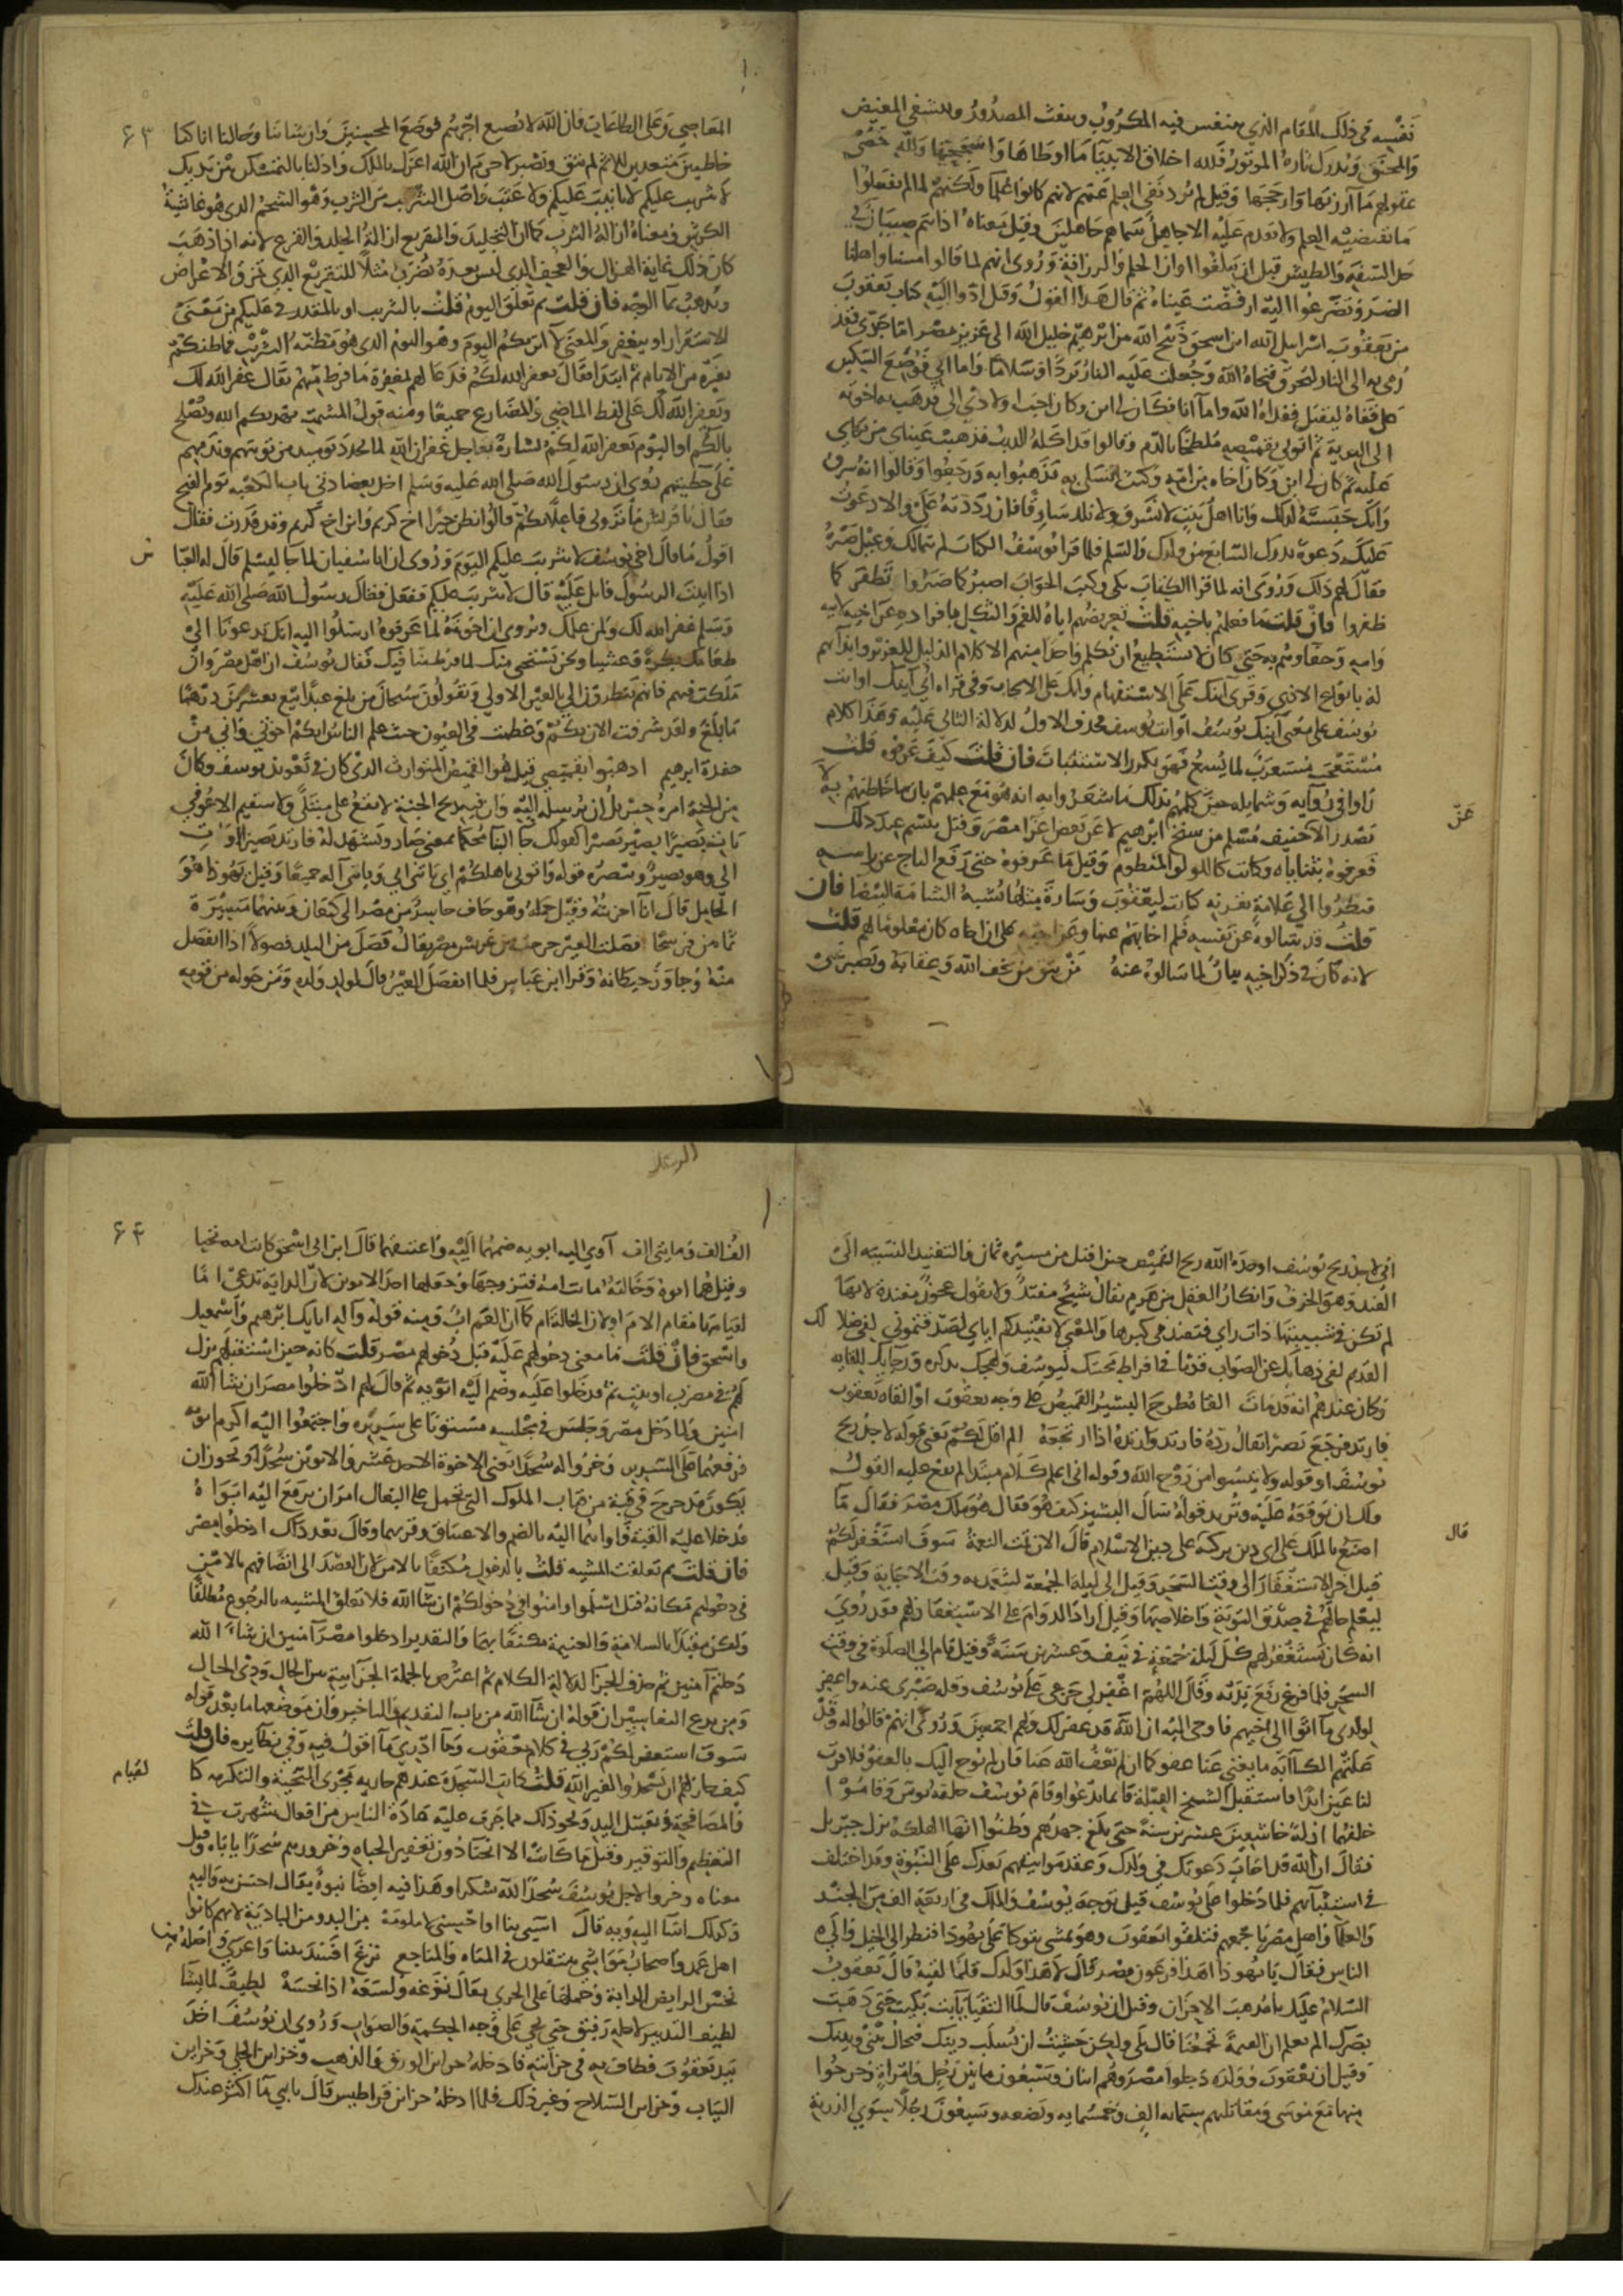 نفسه في ذلك المقام الذي يتنفس فيه المكروب وينفث المصدور ويتشفى المغيض
والمحنق ويدرك ثاره الموتور فلله اخلاق الانبيا ما اوطاها واسجحها ولله حصى
عقولهم ما ارزنها وارجحها وقيل لم يرد نفي العلم عنهم لانهم كانوا علما ولكنهم لما لم يفعلوا
ما يقتضيه العلم ولا يقدم عليه الا جاهل سماهم جاهلين وقيل معناه اذ انتم صبيان في
حد السفه والطيش قبل ان تبلغوا اوان الحلم والرزانة وروى انهم لما قالوا مسنا واهلنا
الضر وتضرعوا اليه ارفضت عيناه ثم قال هذا القول وقيل ادوا اليه كتاب يعقوب
من يعقوب اسرايل الله ابن اسحق ذبيح الله من ابرهيم خليل الله الى عزيز مصر اما جدي فشد
رمي به الى النار ليحرق فنجاه الله وجعلت عليه النار بردا وسلاما واما ابي فوضع السكين
على قفاه ليقتل ففداه الله واما انا فكان لي ابن وكان احب اولادي الي فذهب به اخوته
الى البرية ثم اتوني بقميصه ملطخا بالدم وقالوا قد اكله الذيب فذهبت عيناي من بكاي
عليه ثم كان لي ابن وكان اخاه من امه وكنت اتسلى به فذهبوا به ورجعوا وقالوا انه سرق
وانك حبسته لذلك وانا اهل بيت لا نسرق ولا نلد سارقا فان رددته علي والا دعوت
عليك دعوة تدرك السابع من ولدك والسلم فلما قرا يوسف الكتاب لم يتمالك وعيل صبره
فقال لهم ذلك وروى انه لما قرا الكتاب بكى وكتب الجواب اصبر كما صبروا تظفر كما
ظفروا فان قلت ما فعلهم باخيه قلت تعريضهم اياه للغم والثكل بافراده عن اخيه لابيه
وامه وجفاوهم به حتى كان لا يستطيع ان يكلم واحدا منهم الا كلام الذليل للعزيز وايذآيهم
له بانواع الاذى وقرى ائنك على الاستفهام وانك على الايجاب وفي قراة ابي ائنك اوانت
يوسف على معنى ائنك يوسف اوانت يوسف فحذف الاول لدلالة الثاني عليه وهذا كلام
متعجب مستغرب لما يسمع فهو يكرر الاستثبات فان قلت كيف عرفوه قلت
راوا في روايه وشمايله حين كلمهم بذلك ما شعروا به انه هو مع علمهم بان ما خاطبهم به لا
يصدر الا عن حنيف مسلم من سنخ ابرهيم لا عن بعض اعزا مصر وقيل تبسم عند ذلك
فعرفوه بثناياه وكانت كاللولو المنظوم وقيل ما عرفوه حتى رفع التاج عن راسه
فنظروا الى علامة بقرنه كانت ليعقوب وسارة مثلها تشبه الشامة البيضا فان
قلت قد سالوه عن نفسه فلم اجابهم عنها وعن اخيه على ان اخاه كان معلوما لهم قلت
لانه كان في ذكر اخيه بيان لما سالوه عنه من يتق من يخف الله وعقابه ويصبر عن
عن
٦٣
المعاصي وعلى الطاعات فان الله لا يضيع اجرهم فوضع المحسنين وان شاننا وحالنا انا كنا
خاطيين متعمدين للاثم لم نتق ونصبر لا جرم ان الله اعزك بالملك واذلنا بالتمسكن بين يديك
لا تثريب عليكم لا تانيب عليكم ولا عتب واصل التثريب من الثرب وهو الشحم الذي هو غاشية
الكرش ومعناه ازالة الثرب كما ان التجليد والتقريع ازالة الجلد والقرع لانه اذا ذهب
كان ذلك غاية الهزال والعجف الذي ليس بعده فضرب مثلا للتقريع الذي يمزق الاعراض
ويذهب بما الوجه فان قلت بم تعلق اليوم قلت بالتثريب او بالمقدر في عليكم من معنى
الاستقرار او بيغفر والمعنى لا اثربكم اليوم وهو اليوم الذي هو مظنة التثريب فما ظنكم
بغيره من الايام ثم ابتدا فقال يغفر الله لكم فدعا لهم بمغفرة ما فرط منهم يقال غفر الله لك
ويغفر الله لك على لفظ الماضي والمضارع جميعا ومنه قول المشمت يهديكم الله ويصلح
بالكم او اليوم يغفر الله لكم بشارة بعاجل غفران الله لما تجدد يوميذ من توبتهم وندمهم
على خطيتهم روي ان رسول الله صلى الله عليه وسلم اخذ بعضادتي باب الكعبة يوم الفتح
فقال لقريش ما تروني فاعلا بكم قالوا نظن خيرا اخ كريم وابن اخ كريم وقد قدرت فقال
اقول ما قال اخي يوسف لا تثريب عليكم اليوم وروى ان ابا سفيان لما جا ليسلم قال له العبا
س
اذا اتيت الرسول فاتل عليه قال لا تثريب عليكم ففعل فقال رسول الله صلى الله عليه
وسلم غفر الله لك ولمن علمك ويروى ان اخوته لما عرفوه ارسلوا اليه انك تدعونا الى
طعامك بكرة وعشيا ونحن نستحي منك لما فرط منا فيك فقال يوسف ان اهل مصر وان
ملكت فيهم فانهم ينظرون الي بالعين الاولى ويقولون سبحان من بلغ عبدا بيع بعشرين درهما
ما بلغ ولقد شرفت الان بكم وعظمت في العيون حيث علم الناس انكم اخوتي واني من
حفدة ابرهيم اذهبوا بقميصي قيل هو القميص المتوارث الذي كان في تعويذ يوسف وكان
من الجنة امره جبريل ان يرسله اليه وان فيه ريح الجنة لا يقع على مبتلى ولا سقيم الا عوفي
يات بصيرا يصير بصيرا كقولك جا البنا محكما بمعنى صار ويشهد له فارتد بصيرا او يات
الي وهو بصير وينصره قوله واتوني باهلكم اي ياتي ابي وياتي آله جميعا وقيل يهوذا هو
الحامل قال انا احزنته وقيل حمله وهو حاف حاسر من مصر الى كنعان وبينهما مسيرة
ثمانين فرسخا فصلت العير خرجت من عريش مصر يقال فصل من البلد فصولا اذا انفصل
منه وجاوز حيطانه وقرا ابن عباس فلما انفصل العير قال لولد ولده ومن حوله من قومه
اني لاجد ريح يوسف اوجده الله ريح القميص حين اقبل من مسيرة ثمان والتفنيد النسبة الى
الفند وهو الخرف وانكار العقل من هرم يقال شيخ مفند ولا يقول عجوز مفندة لانها
لم تكن في شبيبتها ذات راي فتفند في كبرها والمعنى لولا تفنيدكم اياي لصدقتموني لفي ضلالك
القديم لفي ذهابك عن الصواب قدما في افراط محبتك ليوسف ولهجك بذكره ورجايك للقايه
وكان عندهم انه قد مات القاه طرح البشير القميص على وجه يعقوب او القاه يعقوب
فارتد فرجع بصيرا يقال رده فارتد وارتده اذا ارتجعه الم اقل لكم يعني قوله لاجد ريح
يوسف او قوله ولا تيئسوا من روح الله وقوله اني اعلم كلام مبتدا لم يقع عليه القول
ولك ان توقعه عليه وتريد قوله سال البشير كيف هو فقال هو ملك مصر فقال ما
اصنع بالملك على اي دين تركته على دين الاسلام قال الان تمت النعمة سوف استغفر لكم
قال
قيل اخر الاستغفار الى وقت السحر وقيل الى ليلة الجمعة ليتعمد به وقت الاجابة وقيل
ليعلم حالهم في صدق التوبة واخلاصها وقيل اراد الدوام على الاستغفار لهم فقد روي
انه كان يستغفر لهم كل ليلة جمعة في نيف وعشرين سنة وقيل قام الى الصلوة في وقت
السحر فلما فرغ رفع يديه وقال اللهم اغفر لي جزعي على يوسف وقلة صبري عنه واغفر
لولدي ما اتوا الى اخيهم فاوحى اليه ان الله قد غفر لك ولهم اجمعين وروى انهم قالوا له وقد
علتهم الكآبة ما يغني عنا عفوكما ان لم يعف الله عنا فان لم يوح اليك بالعفو فلا قرت
لنا عين ابدا فاستقبل الشيخ القبلة قايما يدعوا وقام يوسف خلفه يومن وقاموا
خلفهما اذلة خاشعين عشرين سنة حتى بلغ جهدهم وظنوا انها الهلكة نزل جبريل
فقال ان الله قد اجاب دعوتك في ولدك وعقد مواثيقهم بعدك على النبوة وقد اختلف
في استنبآئهم فلما دخلوا على يوسف قيل توجه يوسف والملك في اربعة الف من الجند
والعظما واهل مصر باجمعهم فتلقوا يعقوب وهو يمشي يتوكا على يهوذا فنظر الى الخيل والى
الناس فقال يا يهوذا اهذا فرعون مصر قال لا هذا ولدك فلما لقيه قال يعقوب
السلام عليك يا مذهب الاحزان وقيل ان يوسف قال لما التقيا يا ابت بكيت حتى ذهب
بصرك الم تعلم ان القيمة تجمعنا قال بلى ولكن خشيت ان تسلب دينك فيحال بيني وبينك
وقيل ان يعقوب وولده دخلوا مصر وهم اثنان وسبعون ما بين رجل وامراة وخرجوا
منها مع موسى ومقاتلهم ستماية الف وخمسماية وبضعة وسبعون رجلا سوى الذرية
الرعد
٦٤
الف الف وما يتي الف آوى اليه ابويه ضمهما اليه واعتنقهما قال ابن ابي اسحق كانت امه تحيا
وقيل هما ابوه وخالته ماتت امه فتزوجها وجعلها احد الابوين لان الرابة تدعى اما
لقيامها مقام الام او لان الخالة ام كما ان العم اب ومنه قوله واله ابايك ابرهيم واسمعيل
واسحق فان قلت ما معنى دخولهم عليه قبل دخولهم مصر قلت كانه حين استقبلهم نزل
لهم في مضرب او بيت ثم فدخلوا عليه وضم اليه ابويه ثم قال لهم ادخلوا مصر ان شا الله
امنين ولما دخل مصر وجلس في مجلسه مستويا على سريره واجتمعوا اليه اكرم ابويه
فرفعهما على السرير وخروا له سجدا يعني الاخوة الاحد عشر والابوين سجدا ويجوز ان
يكون قد خرج في قبة من قباب الملوك التي تحمل على البغال امر ان يرفع اليه ابواه
فدخلا عليه القبة فاواهما اليه بالضم والاعتناق وقربهما وقال بعد ذلك ادخلوا مصر
فان قلت بم تعلقت المشية قلت بالدخول مكيفا بالامن لان القصد الى اتصافهم بالامن
في دخولهم فكانه قيل اسلموا وامنوا في دخولكم ان شا الله فلا تعلق المشية بالرجوع مطلقا
ولكن مقيدا بالسلامة والغنيمة مكيفا بهما والتقدير ادخلوا مصر آمنين ان شاء الله
دخلتم آمنين ثم حذف الجزا لدلالة الكلام ثم اعترض بالجملة الجزايية بين الحال وذي الحال
ومن بدع التفاسير ان قوله ان شا الله من باب التقديم والتاخير وان موضعها ما بعد قوله
سوف استغفر لكم ربي في كلام يعقوب وما ادري ما اقول فيه وفي نظايره فان قلت
كيف جاز لهم ان يسجدوا لغير الله قلت كانت السجدة عندهم جارية مجرى التحية والتكرمة كا
لقيام
والمصافحة وتقبيل اليد ونحو ذلك مما جرى عليه عادة الناس من افعال شهرت في
التعظيم والتوقير وقيل ما كانت الا انحنا دون تعفير الجباه وخرورهم سجدا ياباه وقيل
معناه وخروا لاجل يوسف سجدا لله شكرا وهذا فيه ايضا نبوة يقال احسن به واليه
وكذلك اسا اليه وبه قال اسيي بنا او احسني لا ملومة من البدو من البادية لانهم كانوا
اهل عمد واصحاب مواشي ينتقلون في المياه والمناجع نزغ افسد بيننا واغرى واصله من
نخس الرايض الدابة وحملها على الجري يقال نزغه ولسعه اذا نخسه لطيف لما يشا
لطيف التدبير لاجله رفيق حتى يجي على وجه الحكمة والصواب وروى ان يوسف اخذ
بيد يعقوب فطاف به في خزائنه فادخله خزاين الورق والذهب وخزاين الحلي وخزاين
الثياب وخزاين السلاح وغير ذلك فلما ادخله خزاين قراطيس قال يا بني ما اكثر عندك